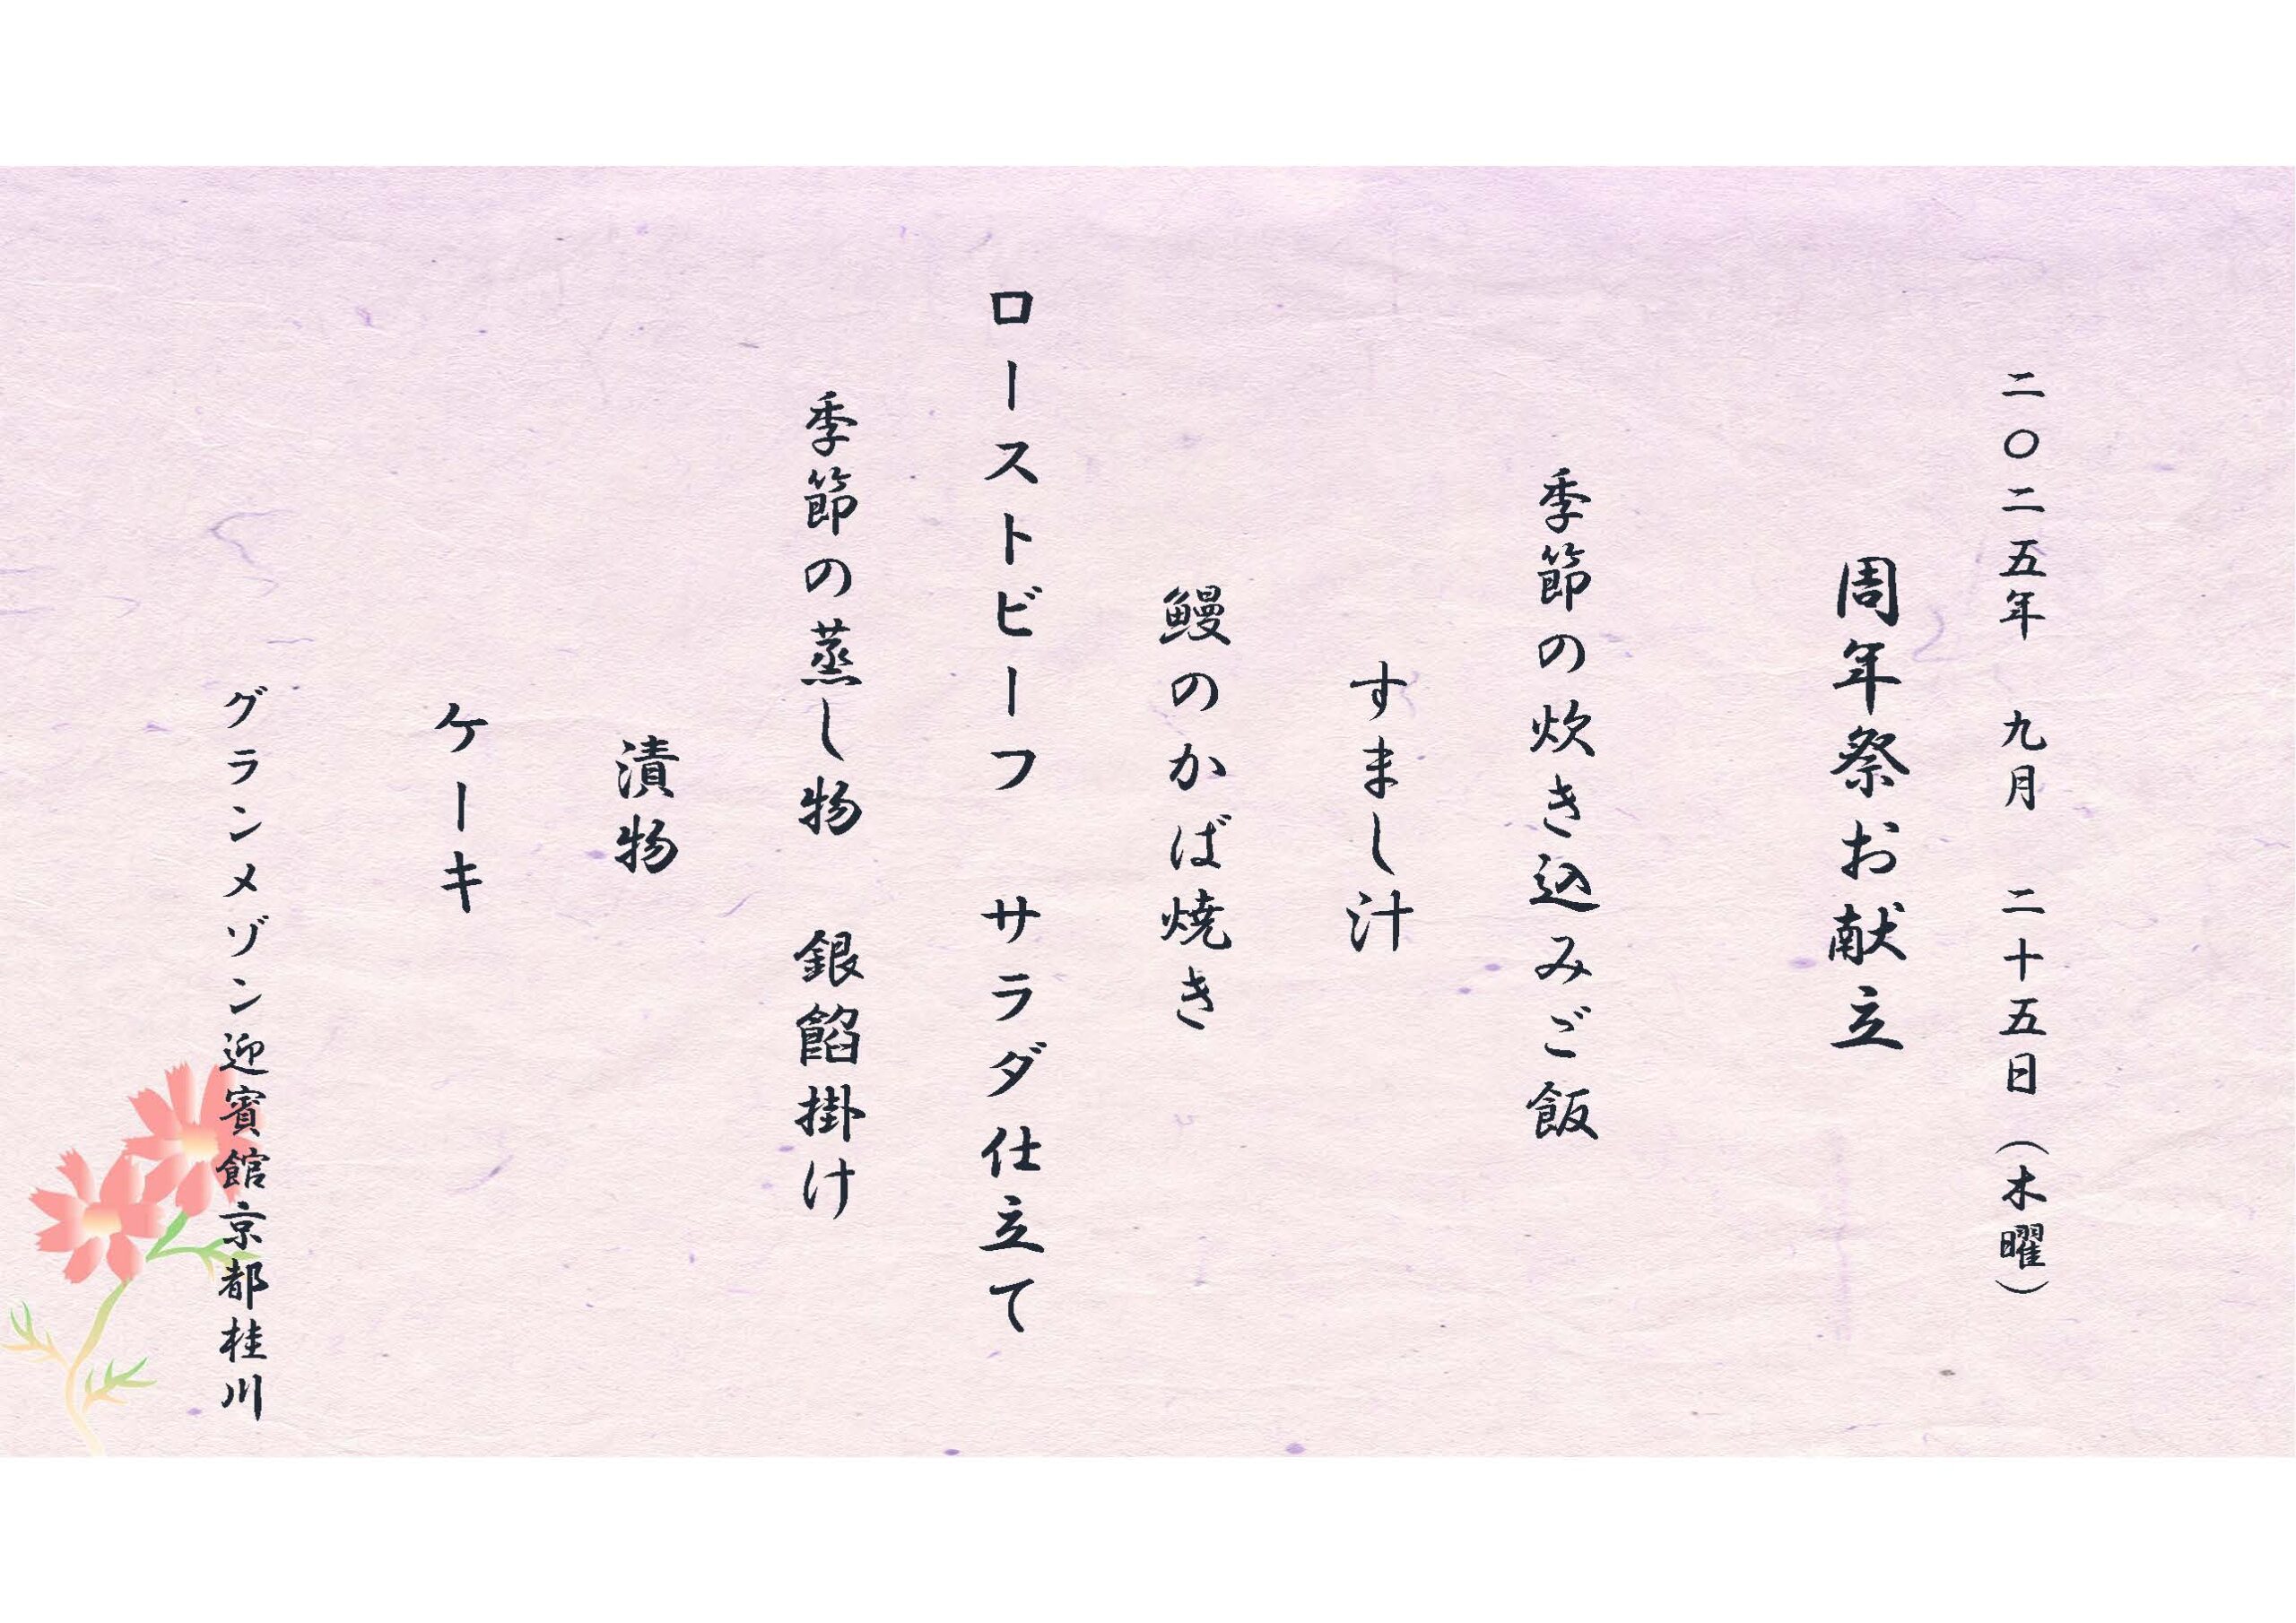 二〇二五年　九月　二十五日（木曜）
周年祭お献立
季節の炊き込みご飯
すまし汁
鰻のかば焼き
ローストビーフ　サラダ仕立て
季節の蒸し物　銀餡掛け
漬物
ケーキ
グランメゾン迎賓館京都桂川